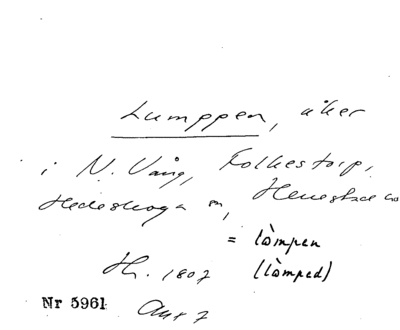 Lumppen, åker
i N. Vång, Folkestorp,
Hedeskoga sn, Herrestad
= lòmpen
Hr. 1807 (lòmped)
Nr 5961 Akt 7